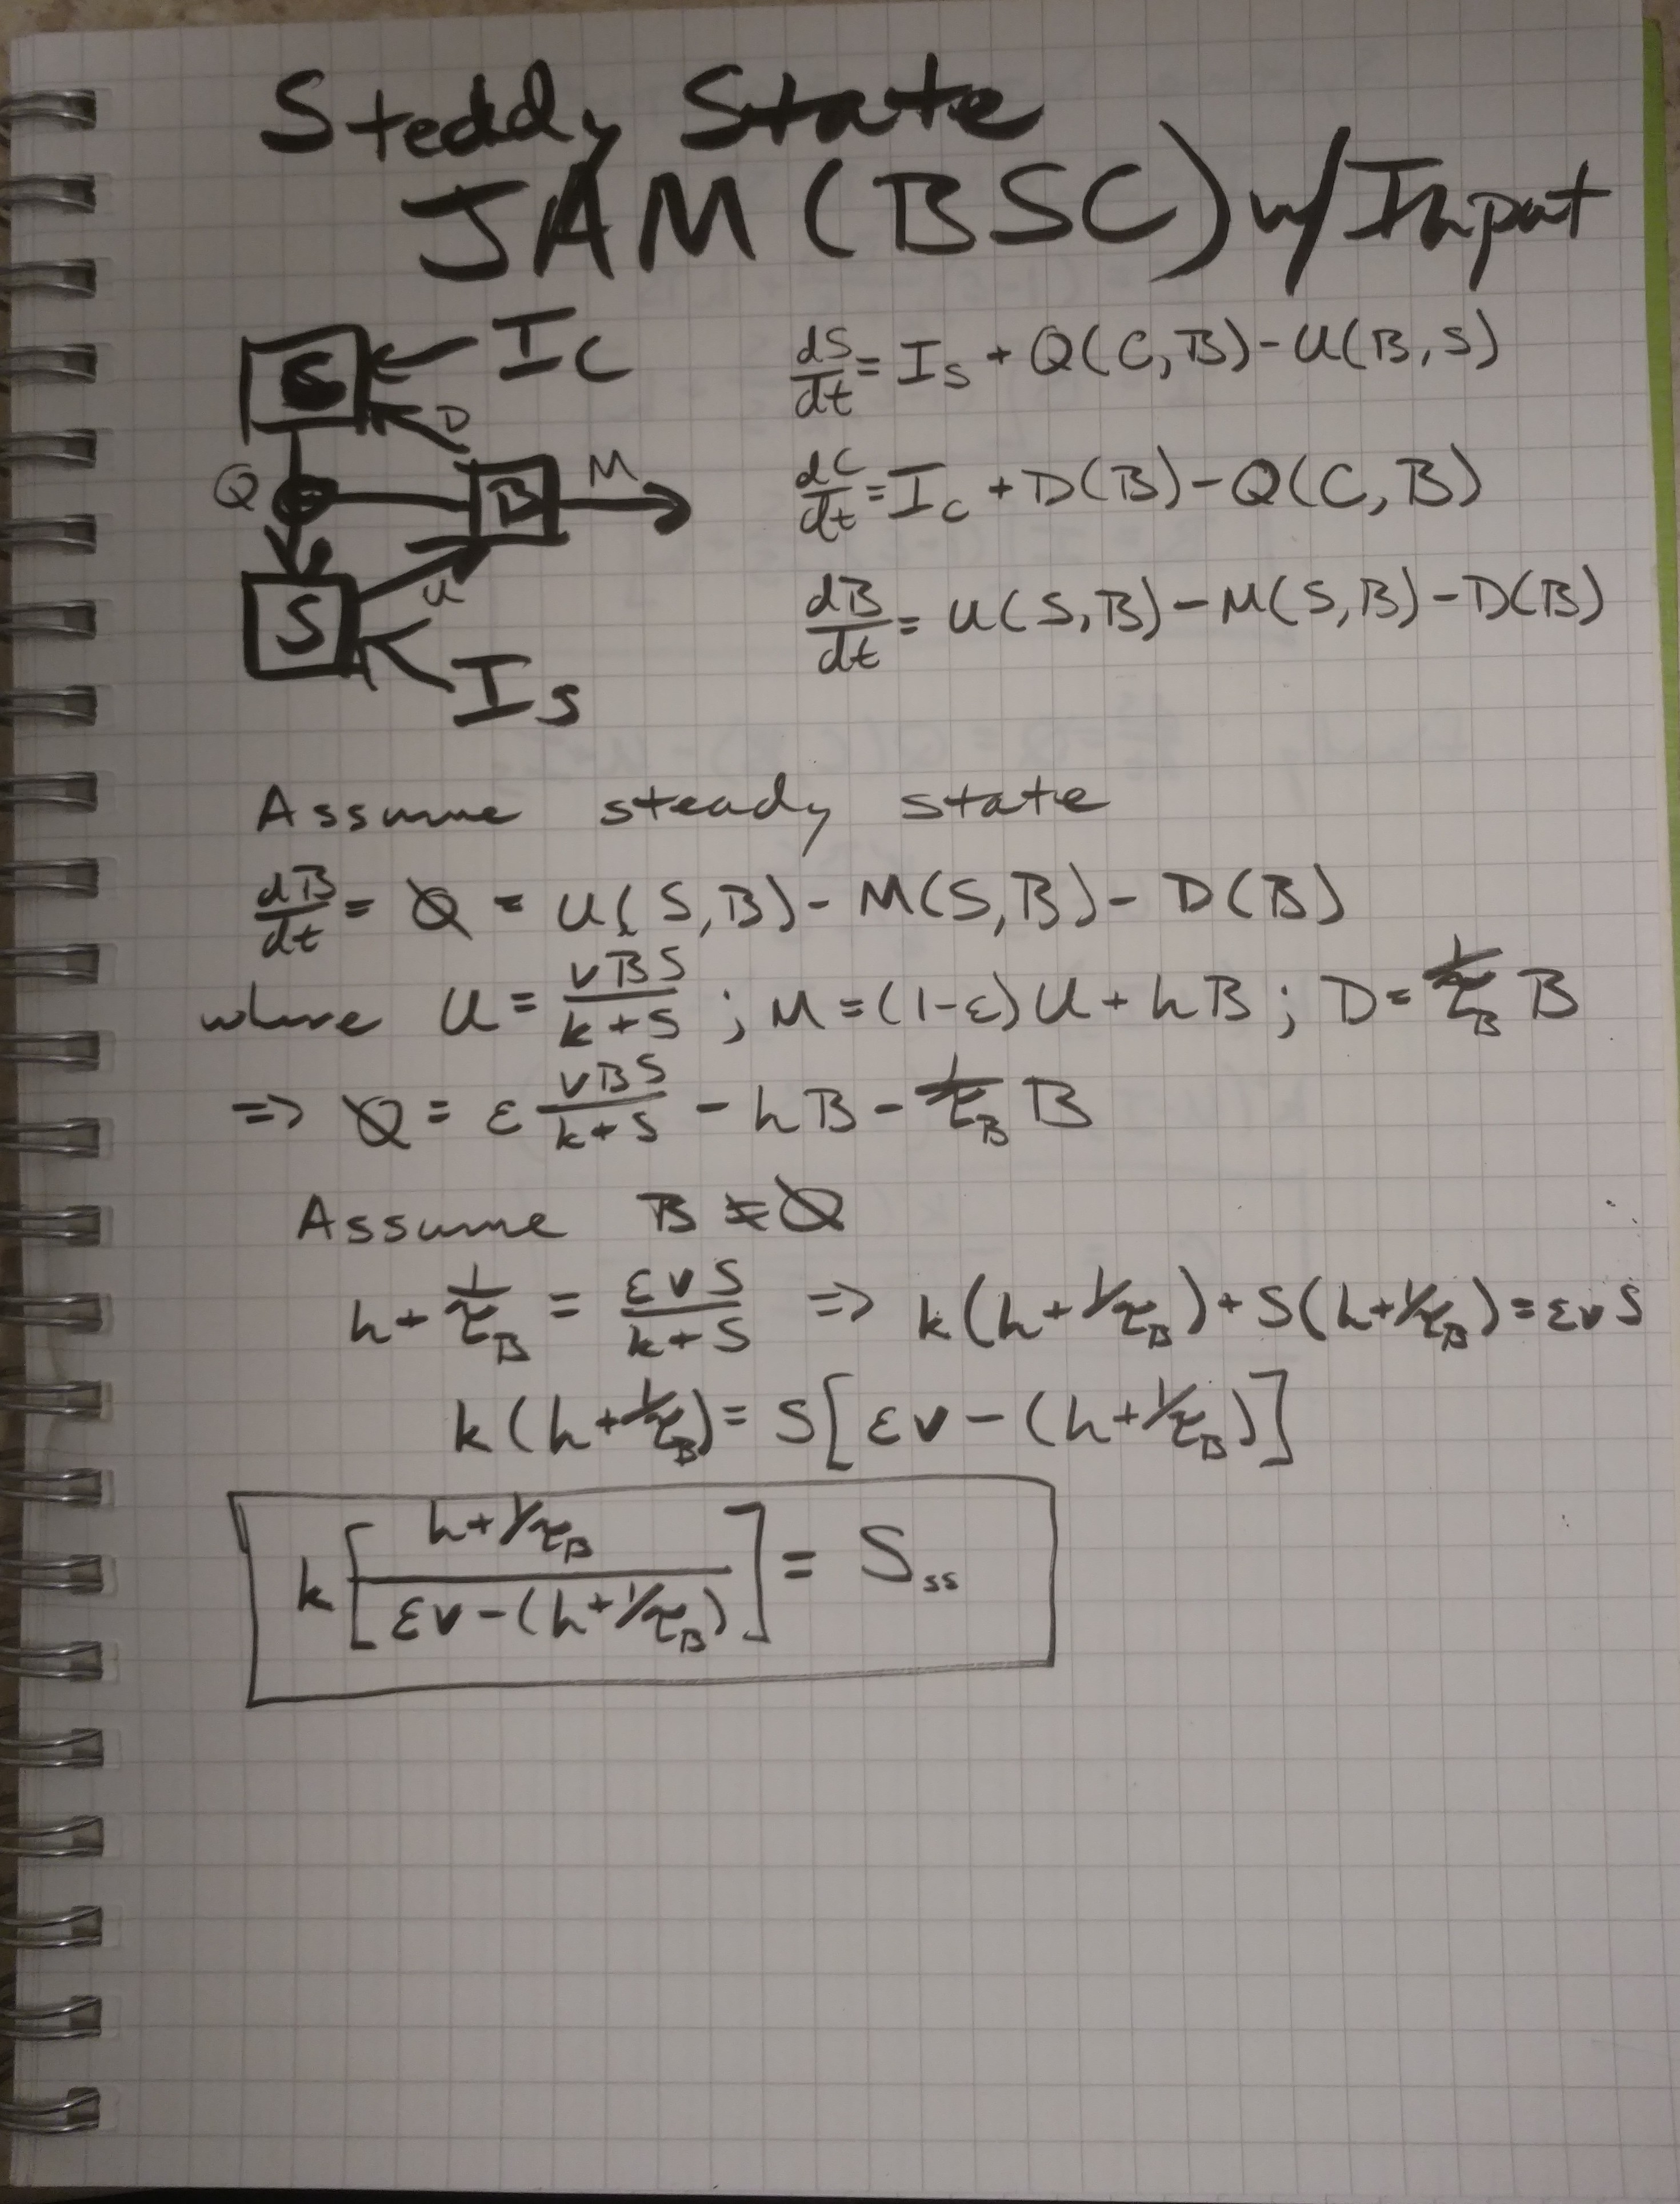 Steddy State
JAM (BSC) w/ Input
C ← I_C
D
Q
B
M
S
u
I_S
dS/dt = I_S + Q(C,B) - U(B,S)
dC/dt = I_C + D(B) - Q(C,B)
dB/dt = U(S,B) - M(S,B) - D(B)
Assume steady state
dB/dt = 0 = U(S,B) - M(S,B) - D(B)
where U = vBS/(k+S) ; M = (1-ε)U + hB ; D = 1/τ_B B
=> 0 = ε vBS/(k+S) - hB - 1/τ_B B
Assume B ≠ 0
h + 1/τ_B = εvS/(k+S) => k(h+1/τ_B) + S(h+1/τ_B) = εvS
k(h+1/τ_B) = S[εv - (h+1/τ_B)]
k[(h+1/τ_B)/(εv-(h+1/τ_B))] = S_ss